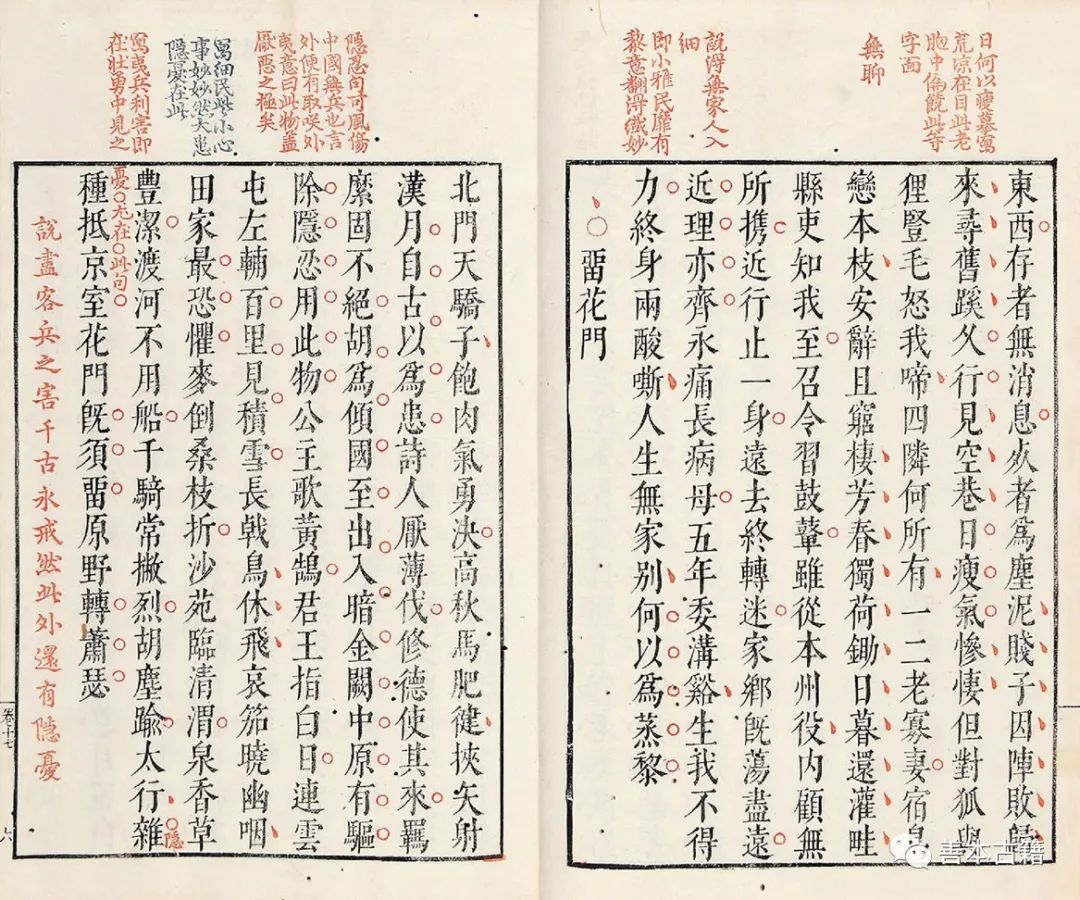 日何以瘦摹寫
荒凉在目此老
胸中偏饒此等
字面
無聊
說淂無家人入
細
即小雅民靡有
黎意翻淂纖妙
東西存者無消息死者爲塵泥賤子因陣敗歸
來尋舊蹊久行見空巷日瘦氣慘悽但對狐與
狸豎毛怒我啼四隣何所有一二老寡妻宿鳥
戀本枝安辭且窮棲芳春獨荷鋤日暮還灌畦
縣吏知我至召令習鼓鼙雖從本州役內顧無
所携近行止一身遠去終轉迷家鄉旣蕩盡遠
近理亦齊永痛長病母五年委溝谿生我不得
力終身兩酸嘶人生無家别何以爲蒸黎
畱花門
隱忍句可風傷
中國無兵也言
外便有取咲外
夷意曰此物盖
厭惡之極矣
寫細民此小心
事妙妙然大患
隱憂在此
寫夷兵利害即
在壯勇中見之
北門天驕子飽肉氣勇決高秋馬肥健挾矢射
漢月自古以爲患詩人厭薄伐修德使其來羈
縻固不絕胡爲傾國至出入暗金闕中原有驅
除隱忍用此物公主歌黃鵠君王指白日連雲
屯左輔百里見積雪長戟鳥休飛哀笳曉幽咽
田家最恐懼麥倒桑枝折沙苑臨清渭泉香草
豐潔渡河不用船千騎常撇烈胡塵踰太行雜
隱
憂尤在此句
種抵京室花門旣須畱原野轉蕭瑟
說盡客兵之害千古永戒然此外還有隱憂
卷之十七
六
善本古籍